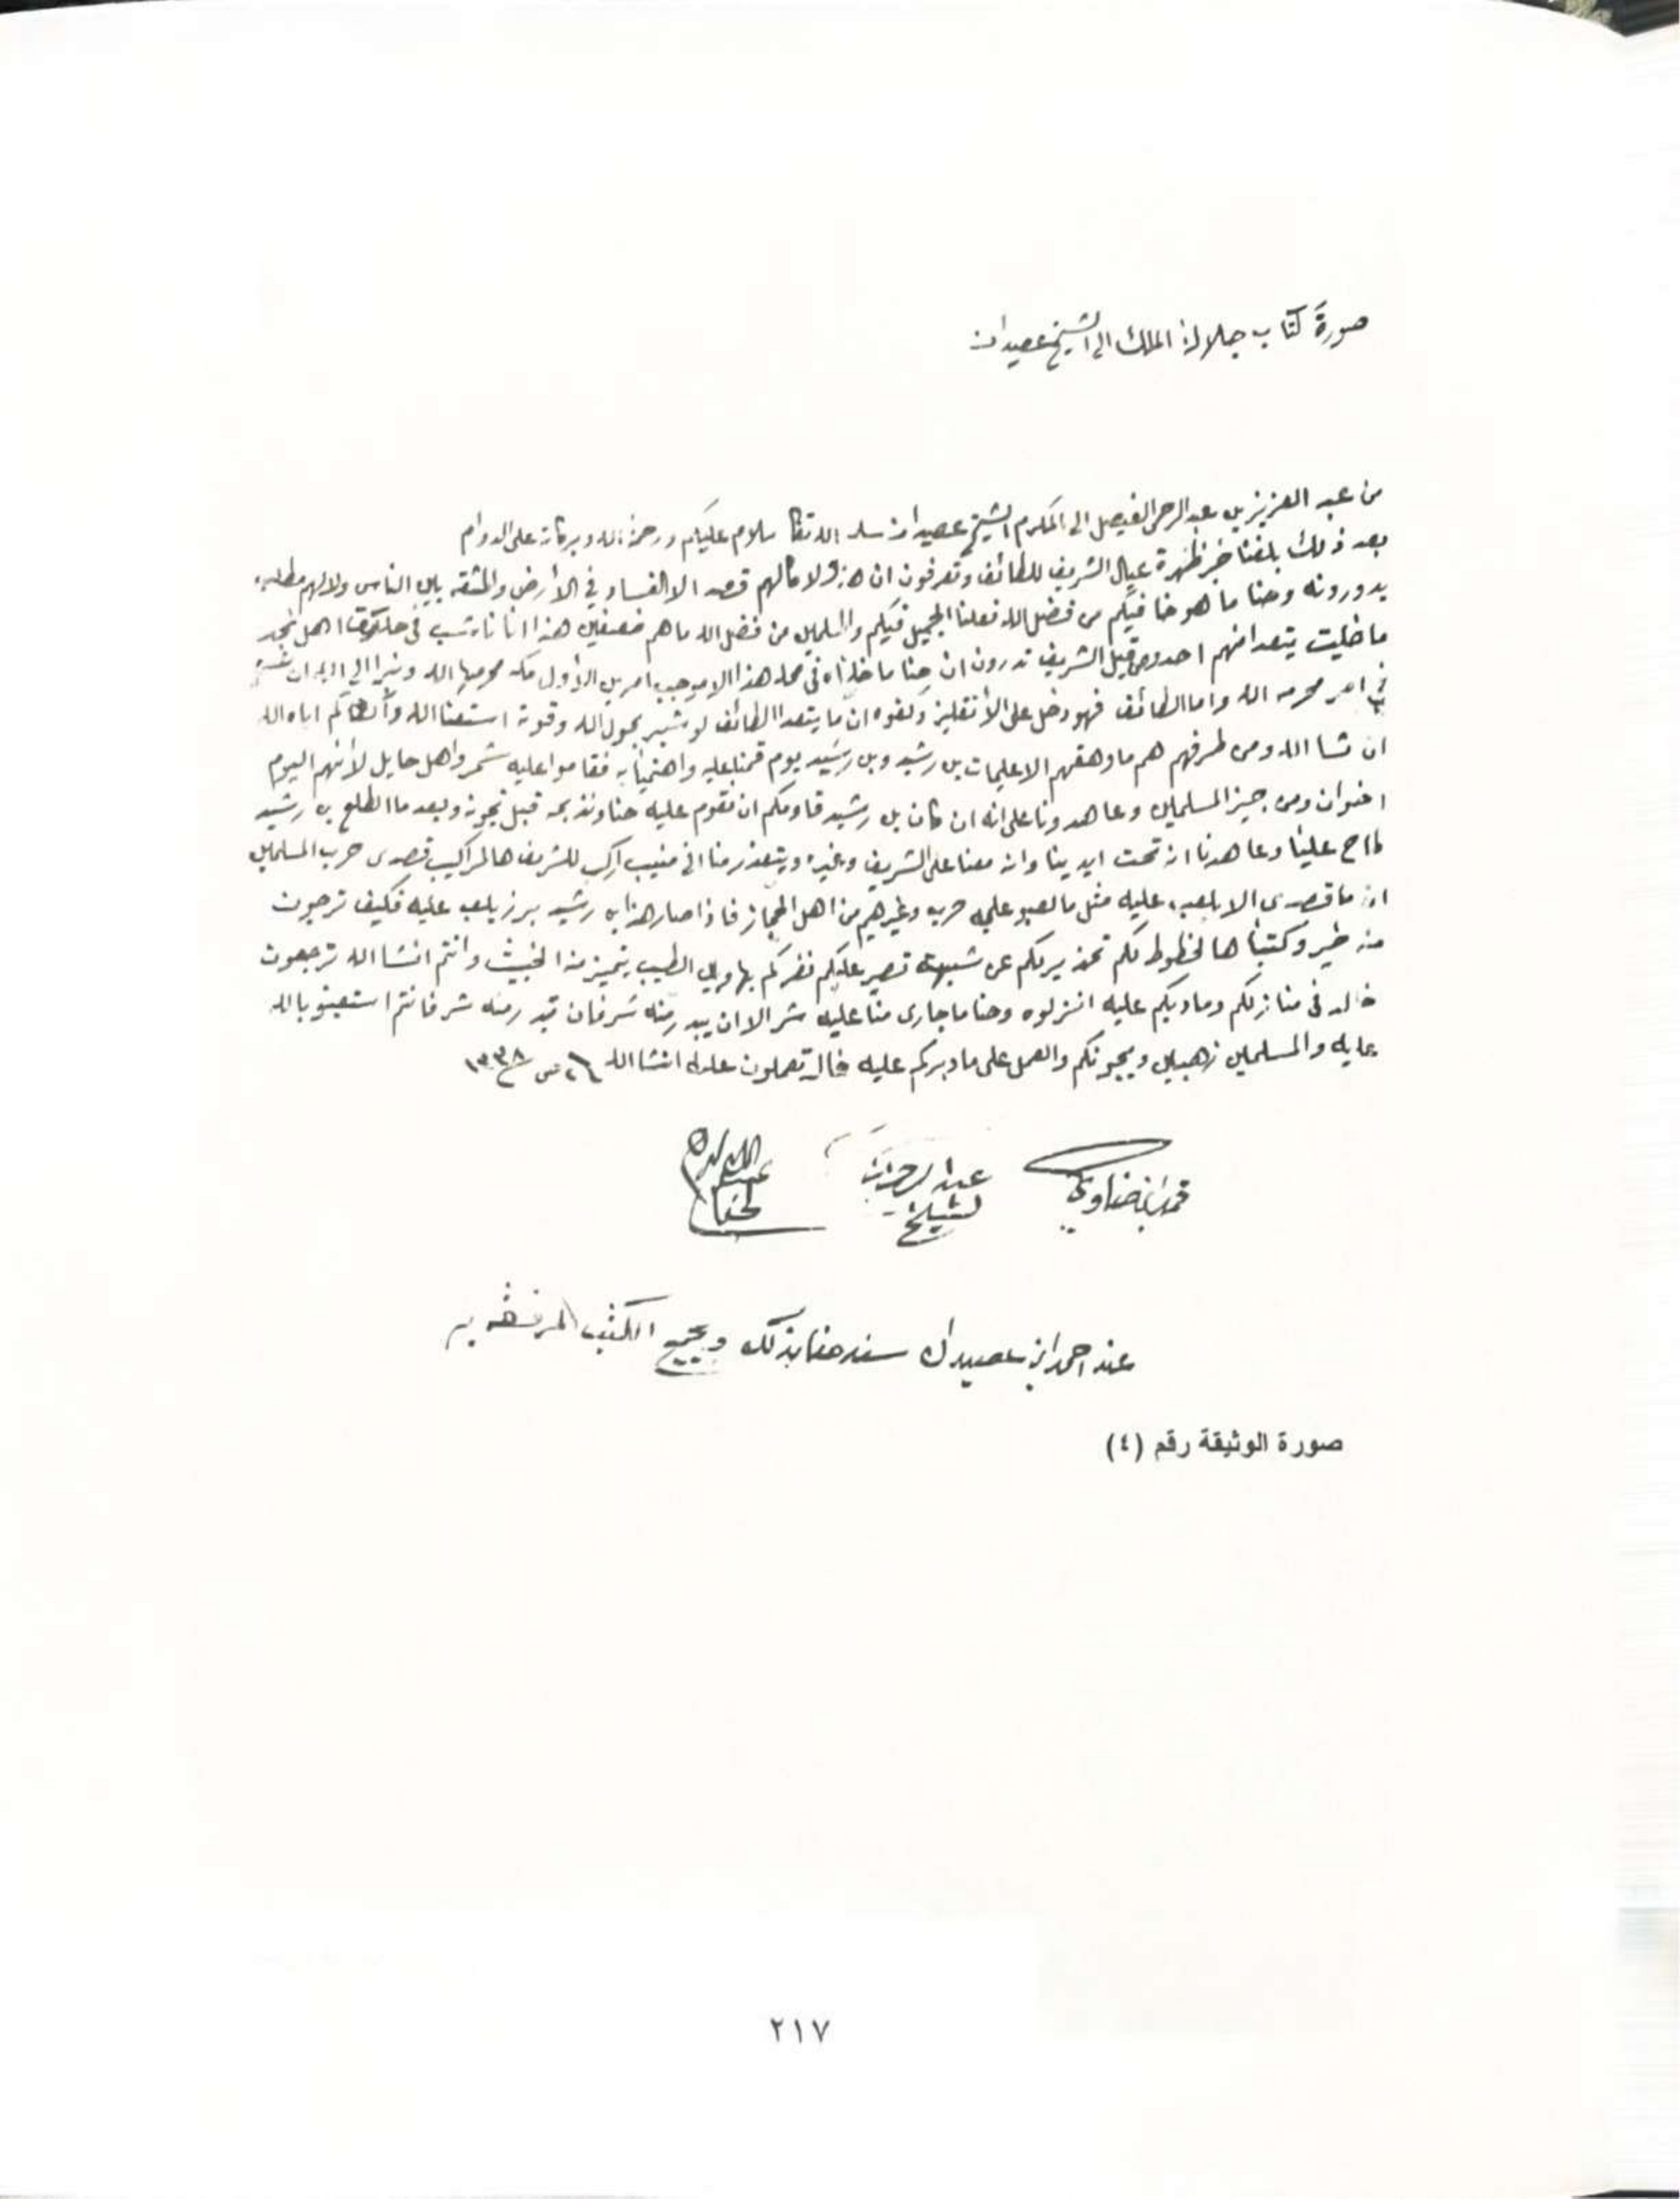 صورة كتاب جلالة الملك الى الشيخ عصيدان
من عبد العزيز بن عبد الرحمن الفيصل الى المكرم الشيخ عصيدان سلمه الله تعا سلام عليكم ورحمة الله وبركاته على الدوام
بعد ذلك بلغنا خبر ظهرة عيال الشريف للطائف وتعرفون ان هذولا مالهم قصد الا الفساد في الأرض والمشقه بين الناس ولالهم مطلب
يدورونه وحنا ما هو خافيكم من فضل الله فعلنا الجميل فيكم والمسلمين من فضل الله ماهم ضعيفين هذا اننا اهل نجد
ما خليت يتعدا منهم احد ومن قبل الشريف تدرون ان حنا ما خليناه في محله هذا الا لموجب امرين الأول مكه محرمها الله
امر محرمه الله واما الطائف فهو دخل على الأنقليز وكفوه ان ما يتعدا الطائف لو شبير بحول الله وقوته استعنا الله
ان شا الله ومن طرفهم هم ماوهقهم الا علمات بن رشيد وبن رشيد يوم قمنا عليه فقاموا عليه شمر واهل حايل لأنهم اليوم
اخوان ومن حيز المسلمين وعاهدونا على انه ان كان بن رشيد قاومكم ان نقوم عليه حنا ونذبحه قبل تجونه وبعد ما اطلع بن رشيد
طاح علينا وعاهدنا انه تحت ايدينا وانه معنا على الشريف وغيره ويتعذر منا اني منيب اركب للشريف هالمراكيب قصدي حرب المسلمين
انه ما قصدي الا بلعب عليه مثل مالعبو عليه حرب وغيرهم من اهل الحجاز فاذا صار هذا بن رشيد يرز يلعب عليه فكيف ترجون
منه خير وكتبنا هالخطوط لكم تحذير لكم عن شبيهة تصير عليكم نضركم بها الطيب يتميز من الخبيث وانتم انشا الله ترجعون
خالد في منازلكم ومادبكم عليه انزلوه وحنا ماجاري منا عليه شر الا ان يبدر منه شر فان بدر منه شر فانتم استعينو بالله
عليه والمسلمين زهبين ويجونكم والعمل على ما دبركم عليه خالد تعملون عليه انشا الله ٢٦ ص ١٣٣٨
عبد الرحمن
الشيخ
عند احمد ابن عصيدان بذلك وجميع الكتب
صورة الوثيقة رقم (٤)
٢١٧